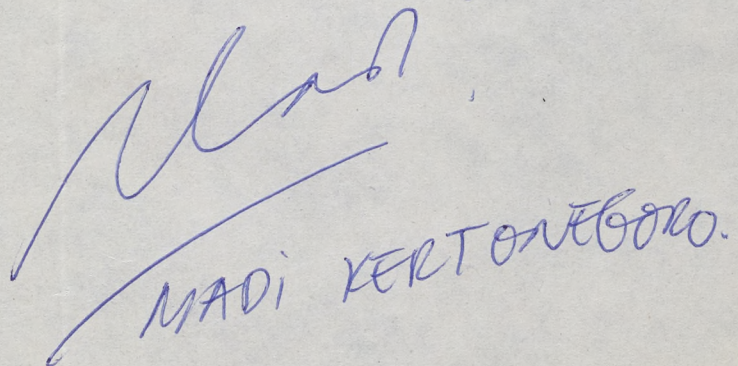 Madi
MADi KERTONEGORO.